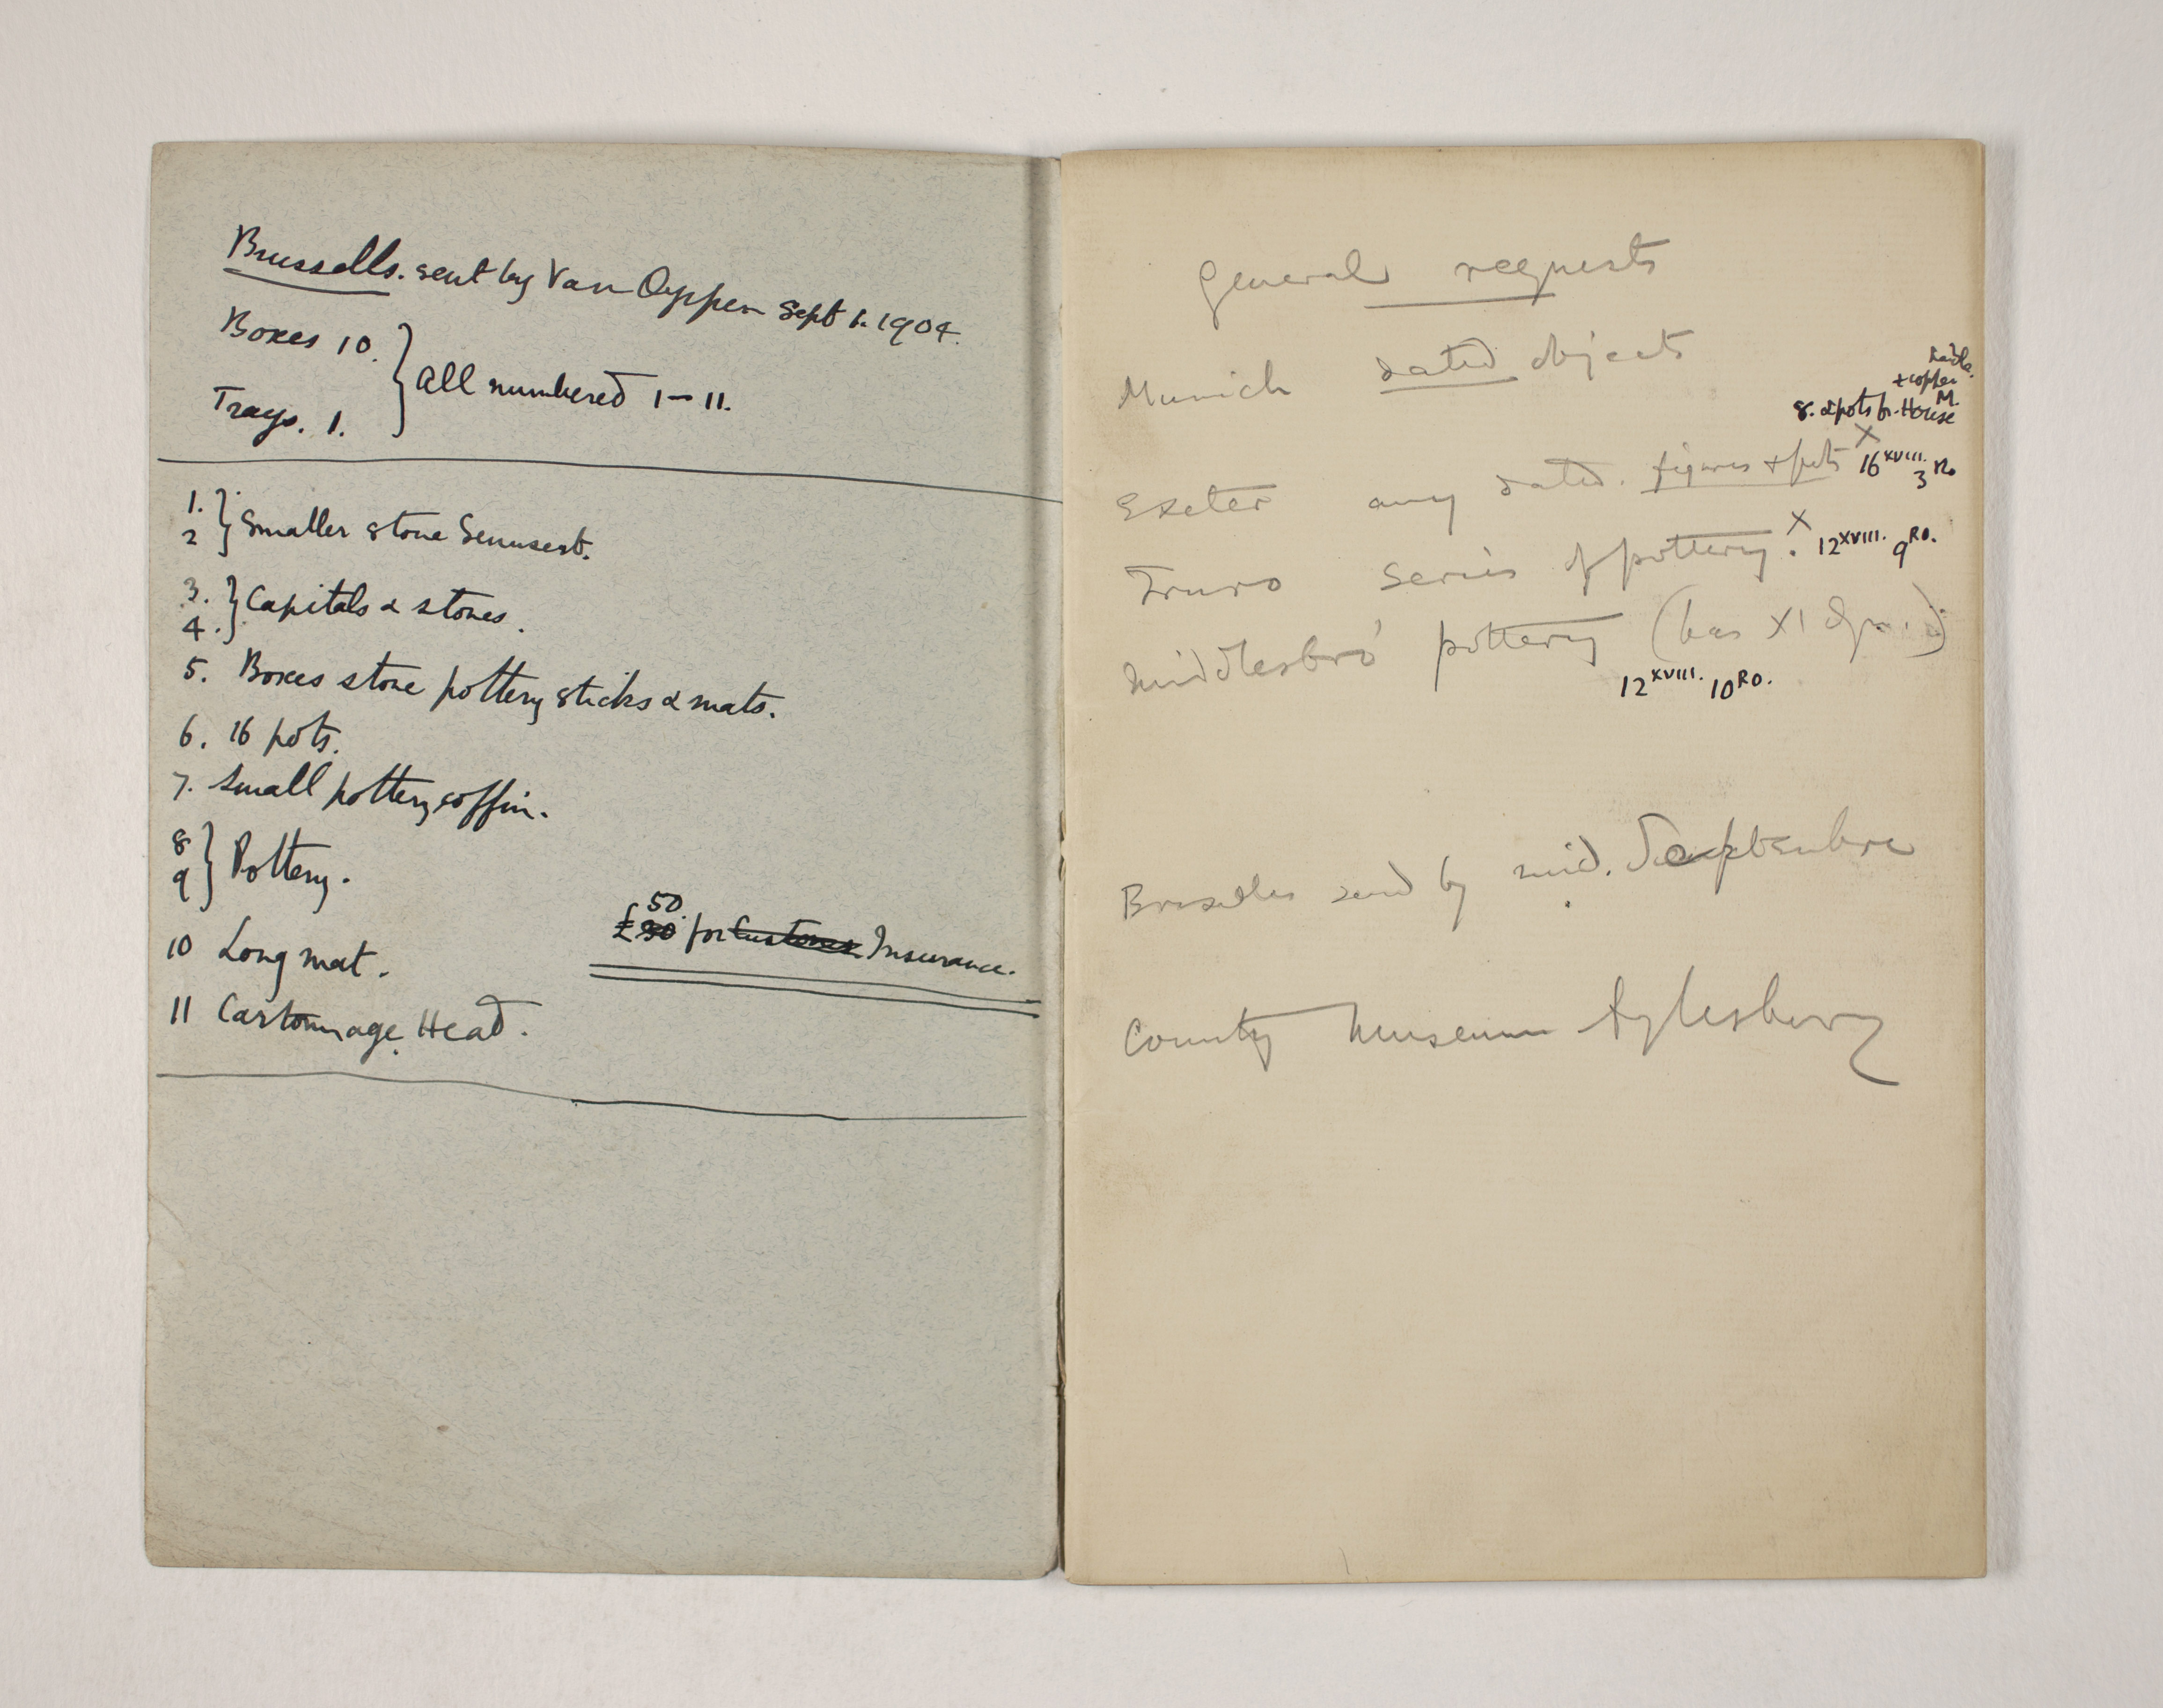 Brussells. sent by Van Oppen Sept 1. 1904.
Boxes 10.
Trays. 1.
} All numbered 1–11.
1.
2
} Smaller stone Senusert.
3.
4.
} Capitals & stones.
5. Boxes stone pottery sticks & mats.
6. 16 pots.
7. Small pottery coffin.
8
9
} Pottery.
50.
£30 for Customs Insurance.
10 Long mat.
11 Cartonnage Head.
General requests
Munich dated objects
+ copper
M.
8. & pots fr. House
Exeter any dated. figures + pots X 16 XVIII. 3 Ro
Truro series of pottery. X 12 XVIII. 9 RO.
Middlesbro' pottery (has XI Dyn.)
12 XVIII. 10 RO.
Bruxelles send by mid. September
County Museum Aylesbury